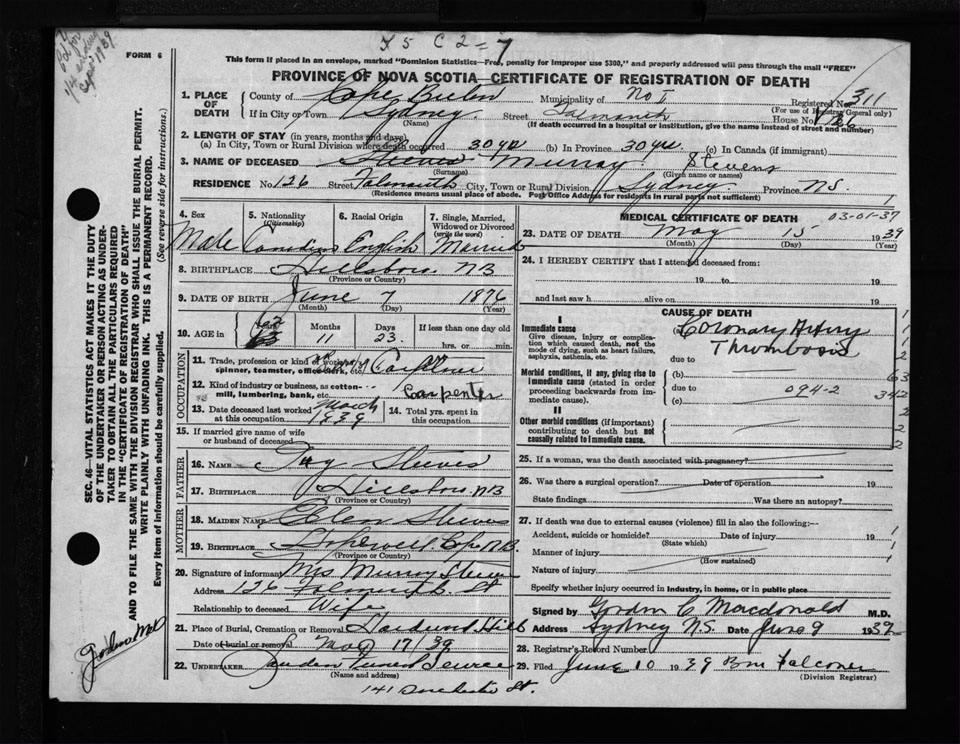 FORM 6
F 5 C 2 = 7
This form if placed in an envelope, marked "Dominion Statistics—Free, penalty for improper use $300," and properly addressed will pass through the mail "FREE"
PROVINCE OF NOVA SCOTIA—CERTIFICATE OF REGISTRATION OF DEATH
1. PLACE OF DEATH
County of Cape Breton Municipality of No 1 Registered No. 311
(For use of Registrar General only)
If in City or Town Sydney Street Falmouth House No. 126
(Name) (If death occurred in a hospital or institution, give the name instead of street and number)
2. LENGTH OF STAY (in years, months and days)
(a) In City, Town or Rural Division where death occurred 30 yrs (b) In Province 30 yrs. (c) In Canada (if immigrant)
3. NAME OF DECEASED Steeves Murray Stevens
(Surname) (Given name or names)
RESIDENCE No. 126 Street Falmouth City, Town or Rural Division Sydney Province N.S.
(Residence means usual place of abode. Post Office Address for residents in rural parts not sufficient)
4. Sex Male
5. Nationality (Citizenship) Canadian
6. Racial Origin English
7. Single, Married, Widowed or Divorced (write the word) Married
8. BIRTHPLACE Hillsboro NB
(Province or Country)
9. DATE OF BIRTH June 7 1876
(Month) (Day) (Year)
10. AGE in Years 62 63 Months 11 Days 23 If less than one day old hrs. or min.
OCCUPATION
11. Trade, profession or kind of work as spinner, teamster, office clerk, etc.
12. Kind of industry or business, as cotton-mill, lumbering, bank, etc. Carpenter
13. Date deceased last worked at this occupation March 1939
14. Total yrs. spent in this occupation
15. If married give name of wife or husband of deceased
FATHER
16. NAME Steeves
17. BIRTHPLACE Hillsboro NB
(Province or Country)
MOTHER
18. MAIDEN NAME Ellen Steeves
19. BIRTHPLACE Hopewell Cape N.B.
(Province or Country)
20. Signature of informant Mrs Murray Steeves
Address 126 Falmouth St
Relationship to deceased Wife
21. Place of Burial, Cremation or Removal Hardwood Hill
Date of burial or removal May 17/39
22. UNDERTAKER Funeral Service
(Name and address)
141 Dorchester St.
MEDICAL CERTIFICATE OF DEATH 03-01-37
23. DATE OF DEATH May 15 1939
(Month) (Day) (Year)
24. I HEREBY CERTIFY that I attended deceased from:
19 to 19
and last saw h alive on 19
CAUSE OF DEATH
I
Immediate cause
Give disease, injury or complication which caused death, not the mode of dying, such as heart failure, asphyxia, asthenia, etc.
(a) Coronary Artery Thrombosis
due to
Morbid conditions, if any, giving rise to immediate cause (stated in order proceeding backwards from immediate cause).
(b)
due to 094-2
(c)
II
Other morbid conditions (if important) contributing to death but not causally related to immediate cause.
1
1
2
63
342
2
2
2
25. If a woman, was the death associated with pregnancy?
26. Was there a surgical operation? Date of operation 19
State findings Was there an autopsy?
27. If death was due to external causes (violence) fill in also the following:—
Accident, suicide or homicide? Date of injury 19
(State which)
Manner of injury
(How sustained)
Nature of injury
Specify whether injury occurred in industry, in home, or in public place
Signed by Gordon C Macdonald M.D.
Address Sydney N.S. Date June 9 1939
28. Registrar's Record Number
29. Filed June 10 1939 Falconer
(Division Registrar)
SEC. 46—VITAL STATISTICS ACT MAKES IT THE DUTY OF THE UNDERTAKER OR PERSON ACTING AS UNDERTAKER TO OBTAIN ALL THE PARTICULARS REQUIRED IN THE "CERTIFICATE OF REGISTRATION OF DEATH" AND TO FILE THE SAME WITH THE DIVISION REGISTRAR WHO SHALL ISSUE THE BURIAL PERMIT.
WRITE PLAINLY WITH UNFADING INK. THIS IS A PERMANENT RECORD.
Every item of information should be carefully supplied. (See reverse side for instructions.)